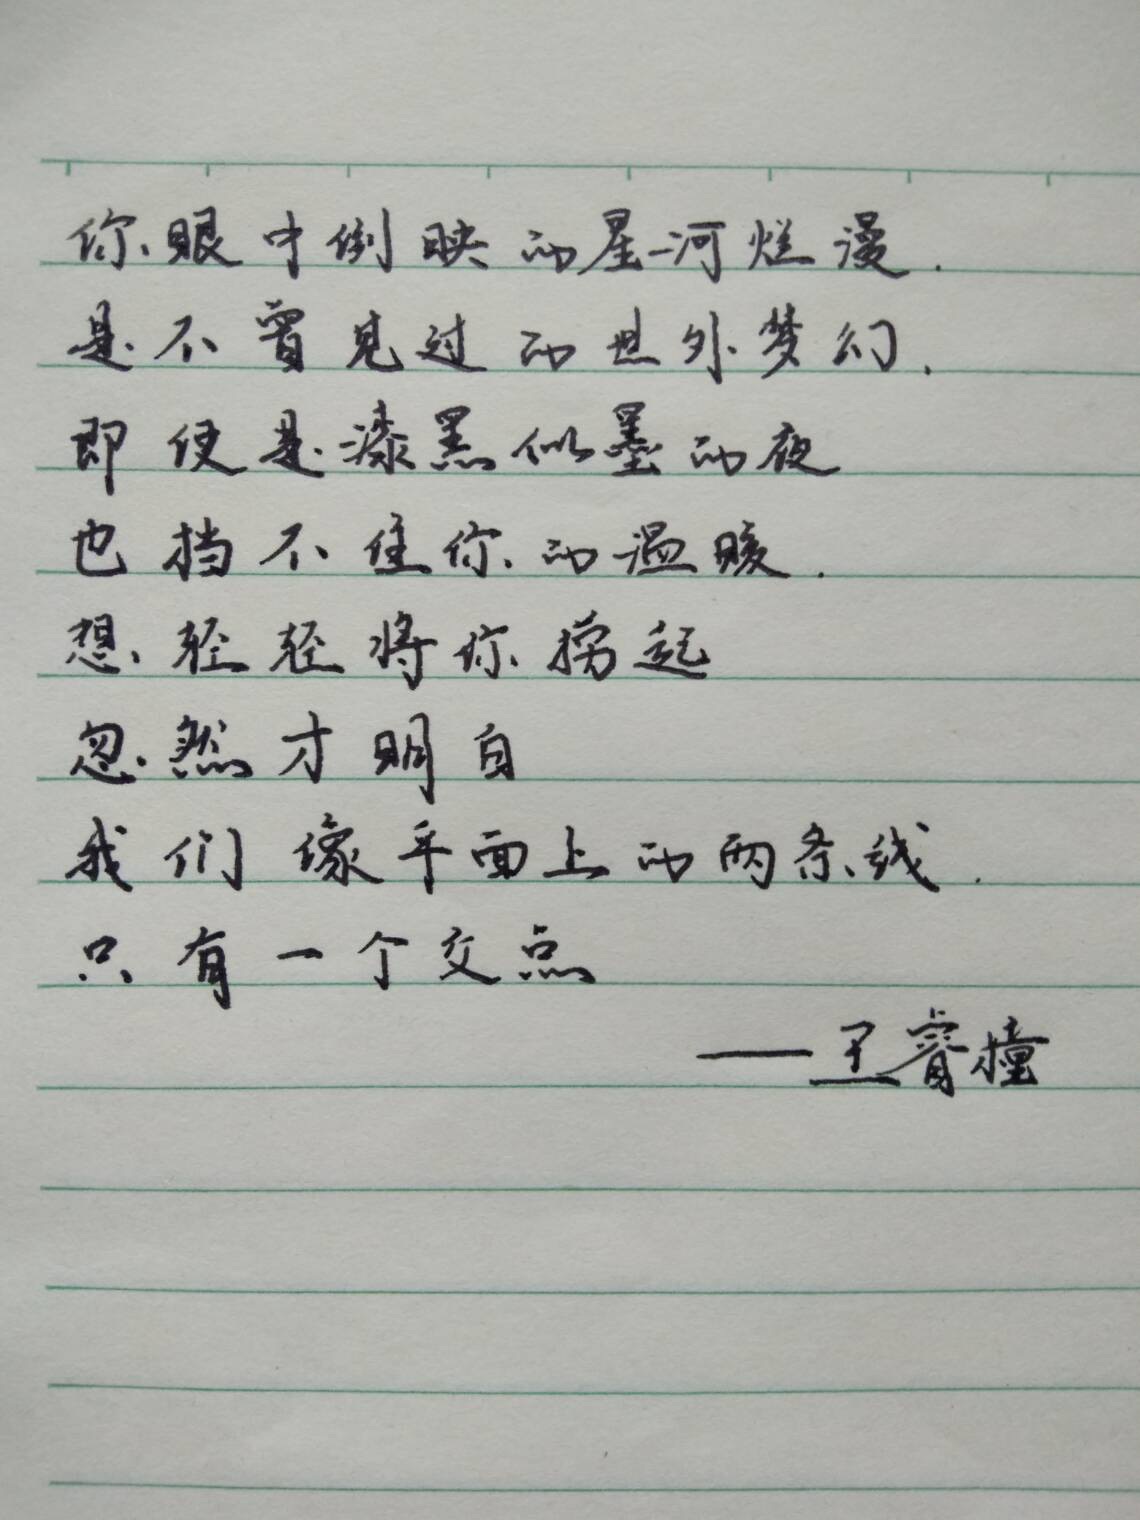 你眼中倒映的星河烂漫.
是不曾见过的世外梦幻.
即使是漆黑似墨的夜
也挡不住你的温暖.
想轻轻将你捞起
忽然才明白
我们像平面上的两条线.
只有一个交点
——王睿橦